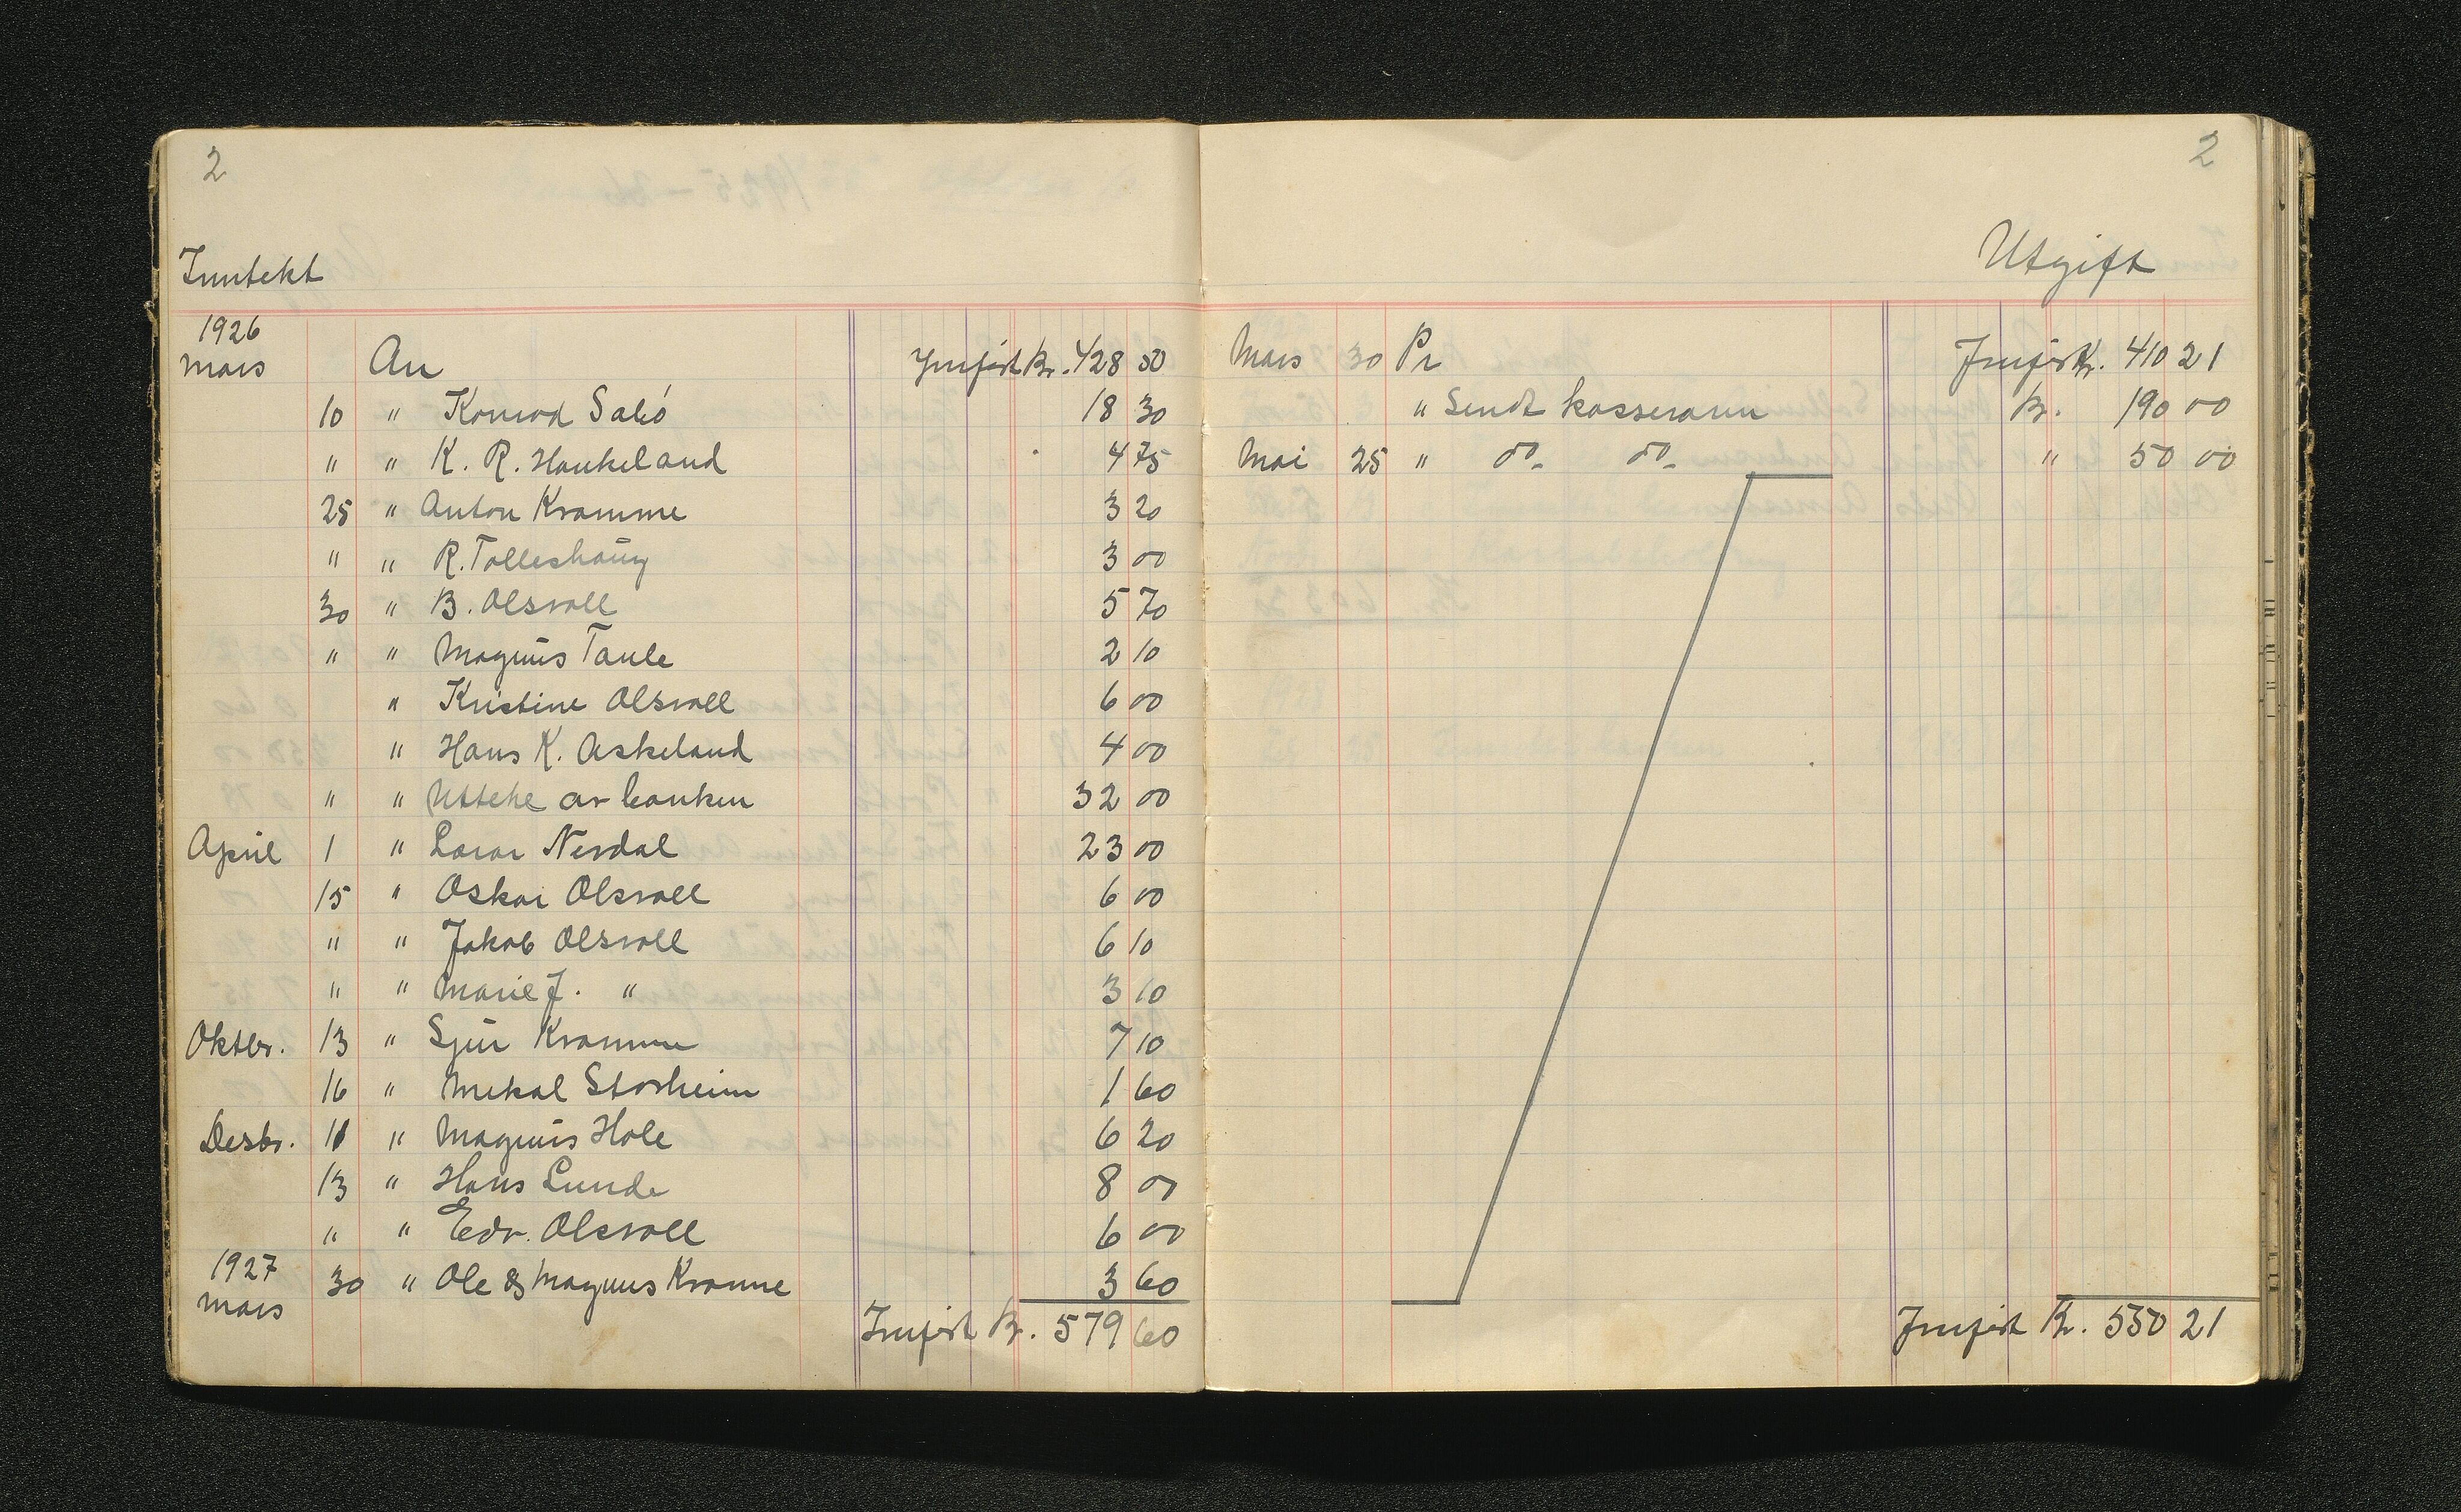 2
Inntekt
1926
Mars An Innført Kr. 428 50
10 " Konrad Sabø 18 30
" " K. R. Haukeland 4 75
25 " Anton Kramme 3 20
" " R. Tolleshaug 3 00
30 " B. Olsvoll 5 70
" " Magnus Taule 2 10
" Kristine Olsvoll 6 00
" Hans K. Askeland 4 00
" " Utteke av banken 32 00
April 1 " Lavar Nerdal 23 00
15 " Oskar Olsvoll 6 00
" " Jakob Olsvoll 6 10
" " Marie J. " 3 10
Oktbr. 13 " Sjur Kramme 7 10
16 " Mekal Storheim 1 60
Desbr. 11 " Magnus Hole 6 20
13 " Hans Lunde 8 00
" " Edv. Olsvoll 6 00
1927
Mars 30 " Ole & Magnus Kramme 3 60
Innført Kr. 579 60
2
Utgift
Mars 30 Pr Innført Kr. 410 21
" Sendt kasseraren Kr. 190 00
Mai 25 " do- do- " 50 00
Innført Kr. 550 21